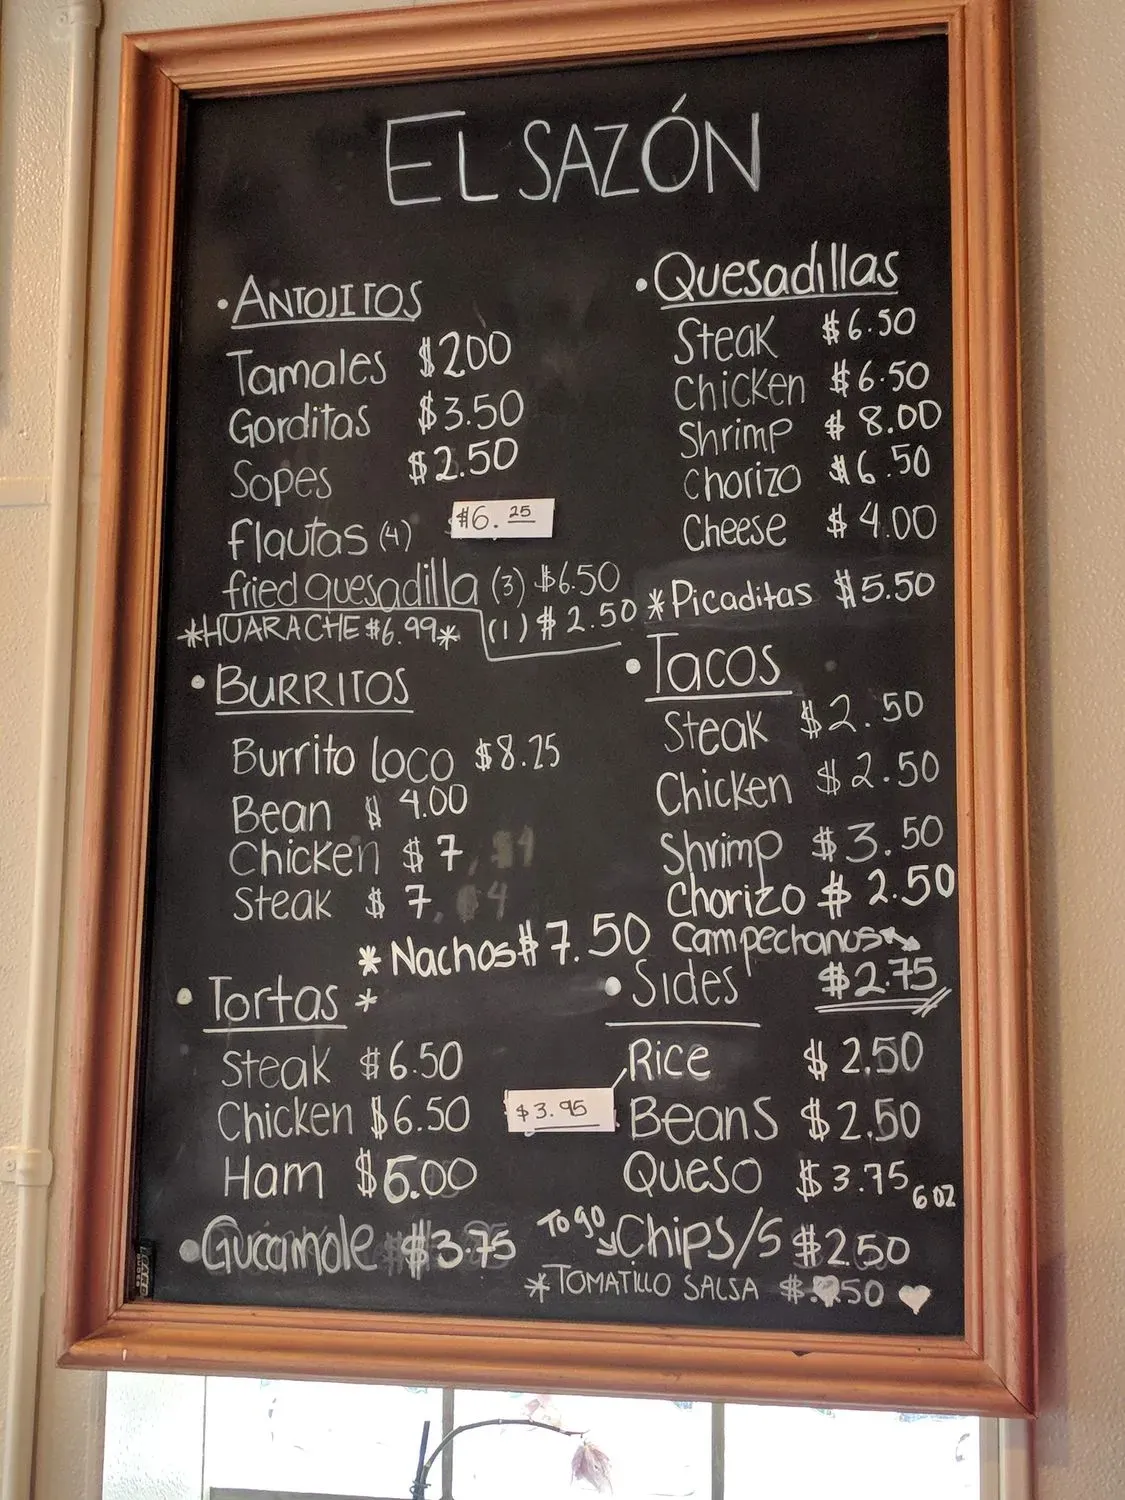 EL SAZÓN
• ANTOJITOS
Tamales $200
Gorditas $3.50
Sopes $2.50
Flautas (4) $6.25
fried quesadilla (3) $6.50
(1) $2.50
*HUARACHE $6.99*
• BURRITOS
Burrito Loco $8.25
Bean $4.00
Chicken $7
Steak $7
*Nachos $7.50
• Tortas *
Steak $6.50
Chicken $6.50
Ham $5.00
• Gucamole $3.75
• Quesadillas
Steak $6.50
Chicken $6.50
Shrimp $8.00
Chorizo $6.50
Cheese $4.00
*Picaditas $5.50
• Tacos
Steak $2.50
Chicken $2.50
Shrimp $3.50
Chorizo $2.50
Campechanos
$2.75
• Sides
Rice $2.50
$3.95
Beans $2.50
Queso $3.75 6 oz
To go Chips/S $2.50
*TOMATILLO SALSA $.50